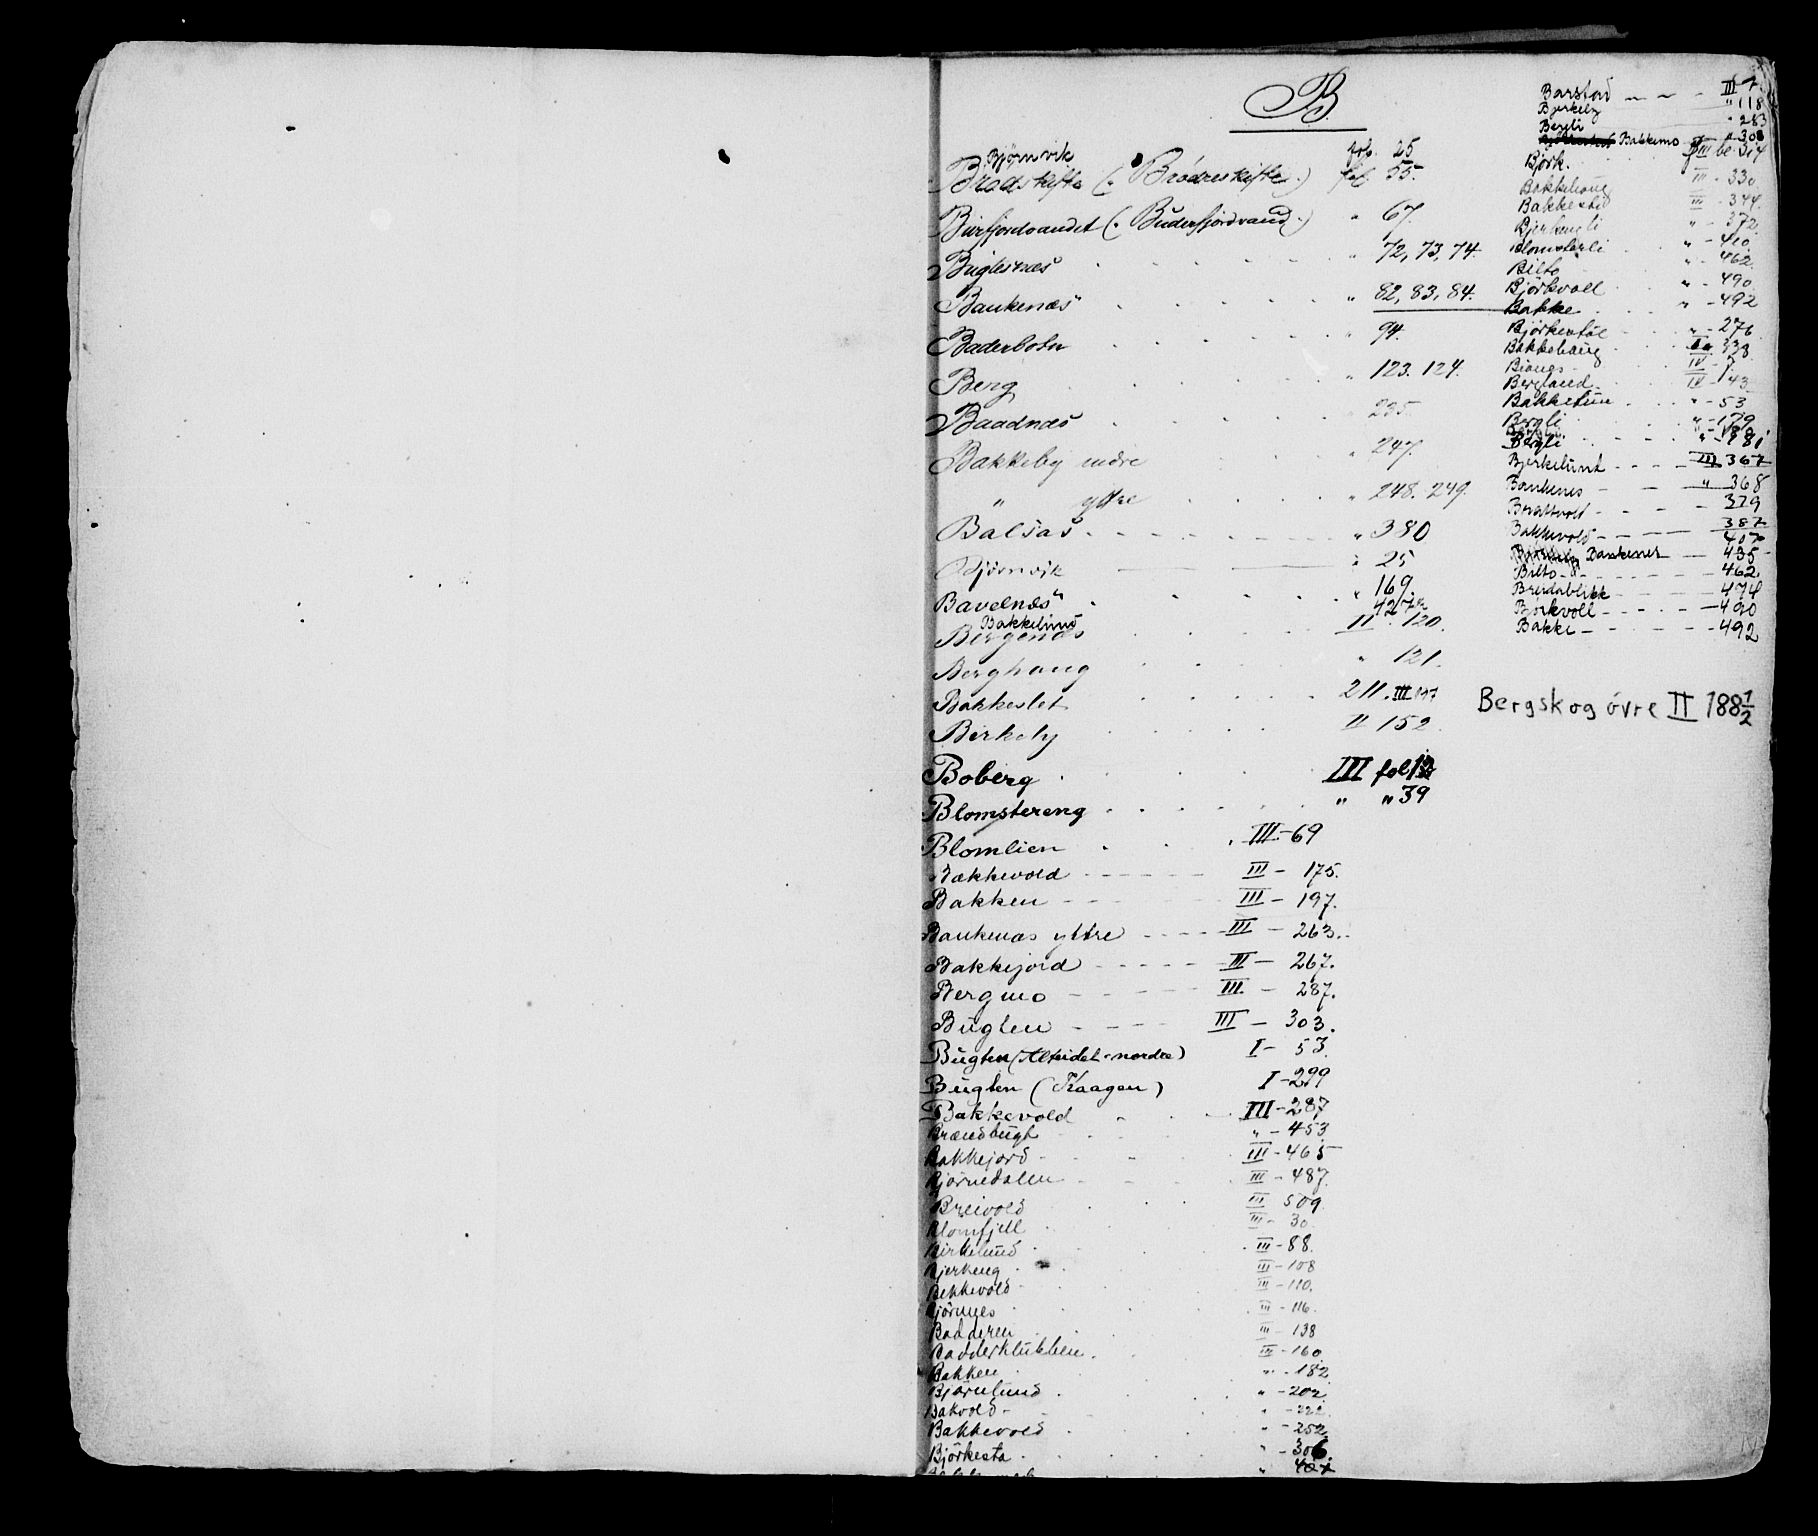 B
Bjørnvik fol. 25
Bradskifte (: Brødreskifte :) fol. 55.
Burfjordvandet (: Buderfjordvand :) " 67.
Buglesnæs " 72, 73, 74.
Baukenæs " 82, 83, 84.
Baderbotn " 94.
Berg " 123. 124.
Baadnæs " 235.
Bakkeby indre " 247.
" yttre " 248. 249.
Balsas " 380
Bjørnvik " 25
Bavelnæs " 169.
Bakkelund 427
Bergenæs II 120.
Berghaug " 121.
Bakkeslet 211. III 197
Birkely II 152
Boberg III fol
Blomstereng " " 39
Blomlien III-69
Bækkevold III - 175.
Bakken III - 197.
Baukenæs yttre III - 263.
Bakkejord III - 267.
Bergmo III - 287.
Bugten III - 303.
Bugten (Alteidet nordre) I - 53.
Bugten (Kaagen) I - 299
Bakkevold III - 287
Brændbugt " - 453
Bakkejord III - 465
Bjørnedalen III - 487.
Breivold III 509.
Blomfjell III - 30.
Birkelund III - 88.
Bjerkeng III - 108
Bekkevold III - 110.
Bjørnnes III - 116.
Badderen III - 138
Badderklubben III - 160
Bakken " - 182
Bjørnlund " - 202
Bakvold " - 222
Bakkevold " - 252
Bjørkesta " - 306
" 407
Barstad III 7
Bjerkely " 118
Bergli " 283
Bakkemo " 308
Bjørk. III 314
Bakkehaug III - 330
Bakkested III - 344.
Bjerkengli " - 372
Blomsterli " - 410
Bilto " - 462
Bjørkvoll " - 490
Bakke " - 492
Bjørkestøl " - 276
Bakkehaug 438
Bjones IV - 7.
Bergland IV - 43
Bakketun " - 53
Bergli " - 179
Bergli " - 181
Bjerkelund III 367
Baukenes " 368
Brattvold 379
Bakkevold 387
407
Baukenes 435
Bilto 462
Breidablikk 474
Bjørkvoll 490
Bakke 492
Bergskog øvre II 188 1/2